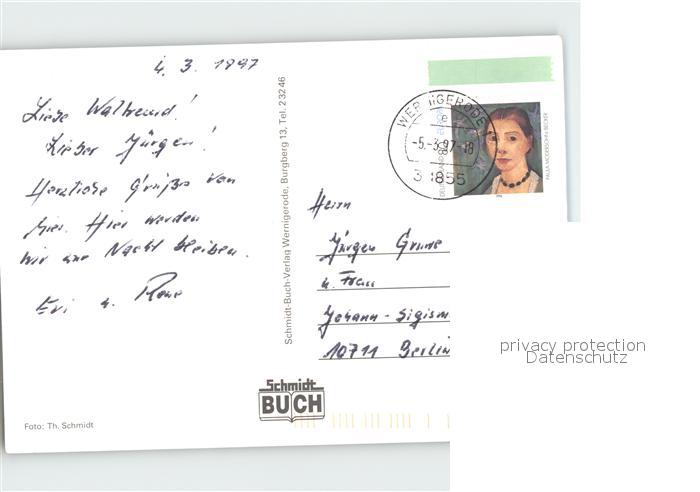 4. 3. 1997
Liebe Waltraud!
Lieber Jürgen!
Herzliche Grüße von
hier. Hier werden
wir eine Nacht bleiben.
Evi u.
Schmidt-Buch-Verlag Wernigerode, Burgberg 13, Tel. 2 32 46
WERNIGERODE
-5.-3.97-18
38855
DEUTSCHLAND
EUROPA
PAULA MODERSOHN-BECKER
1996
Herrn
Jürgen
u. Frau
Johann-Sigism
10711 Berlin
privacy protection
Datenschutz
Schmidt
BUCH
Foto: Th. Schmidt